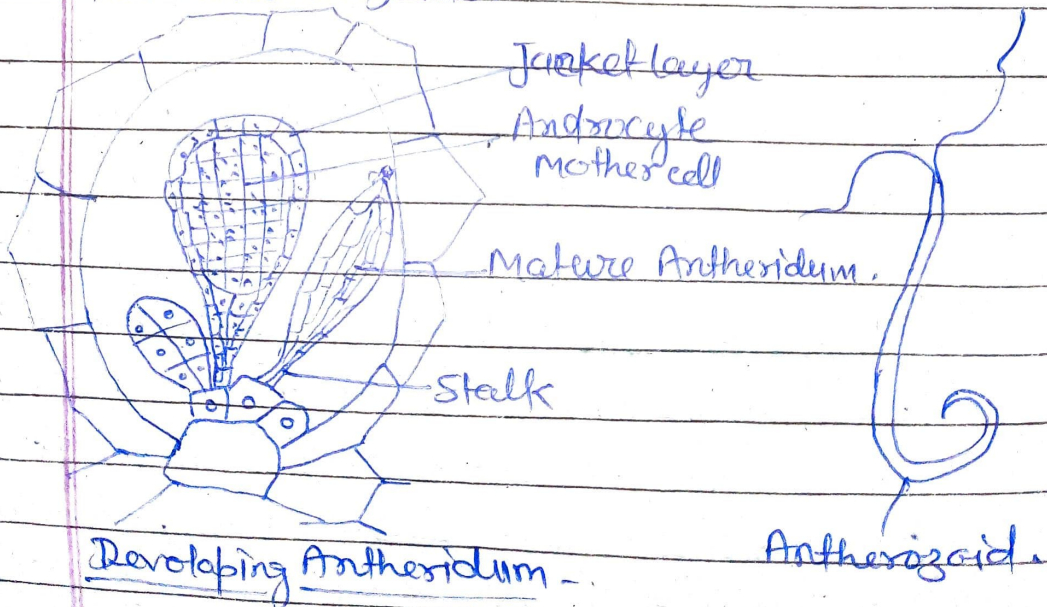 Jacket layer
Androcyte
Mother cell
Mature Antheridum.
Stalk
Devolaping Antheridum -.
Antherozoid.